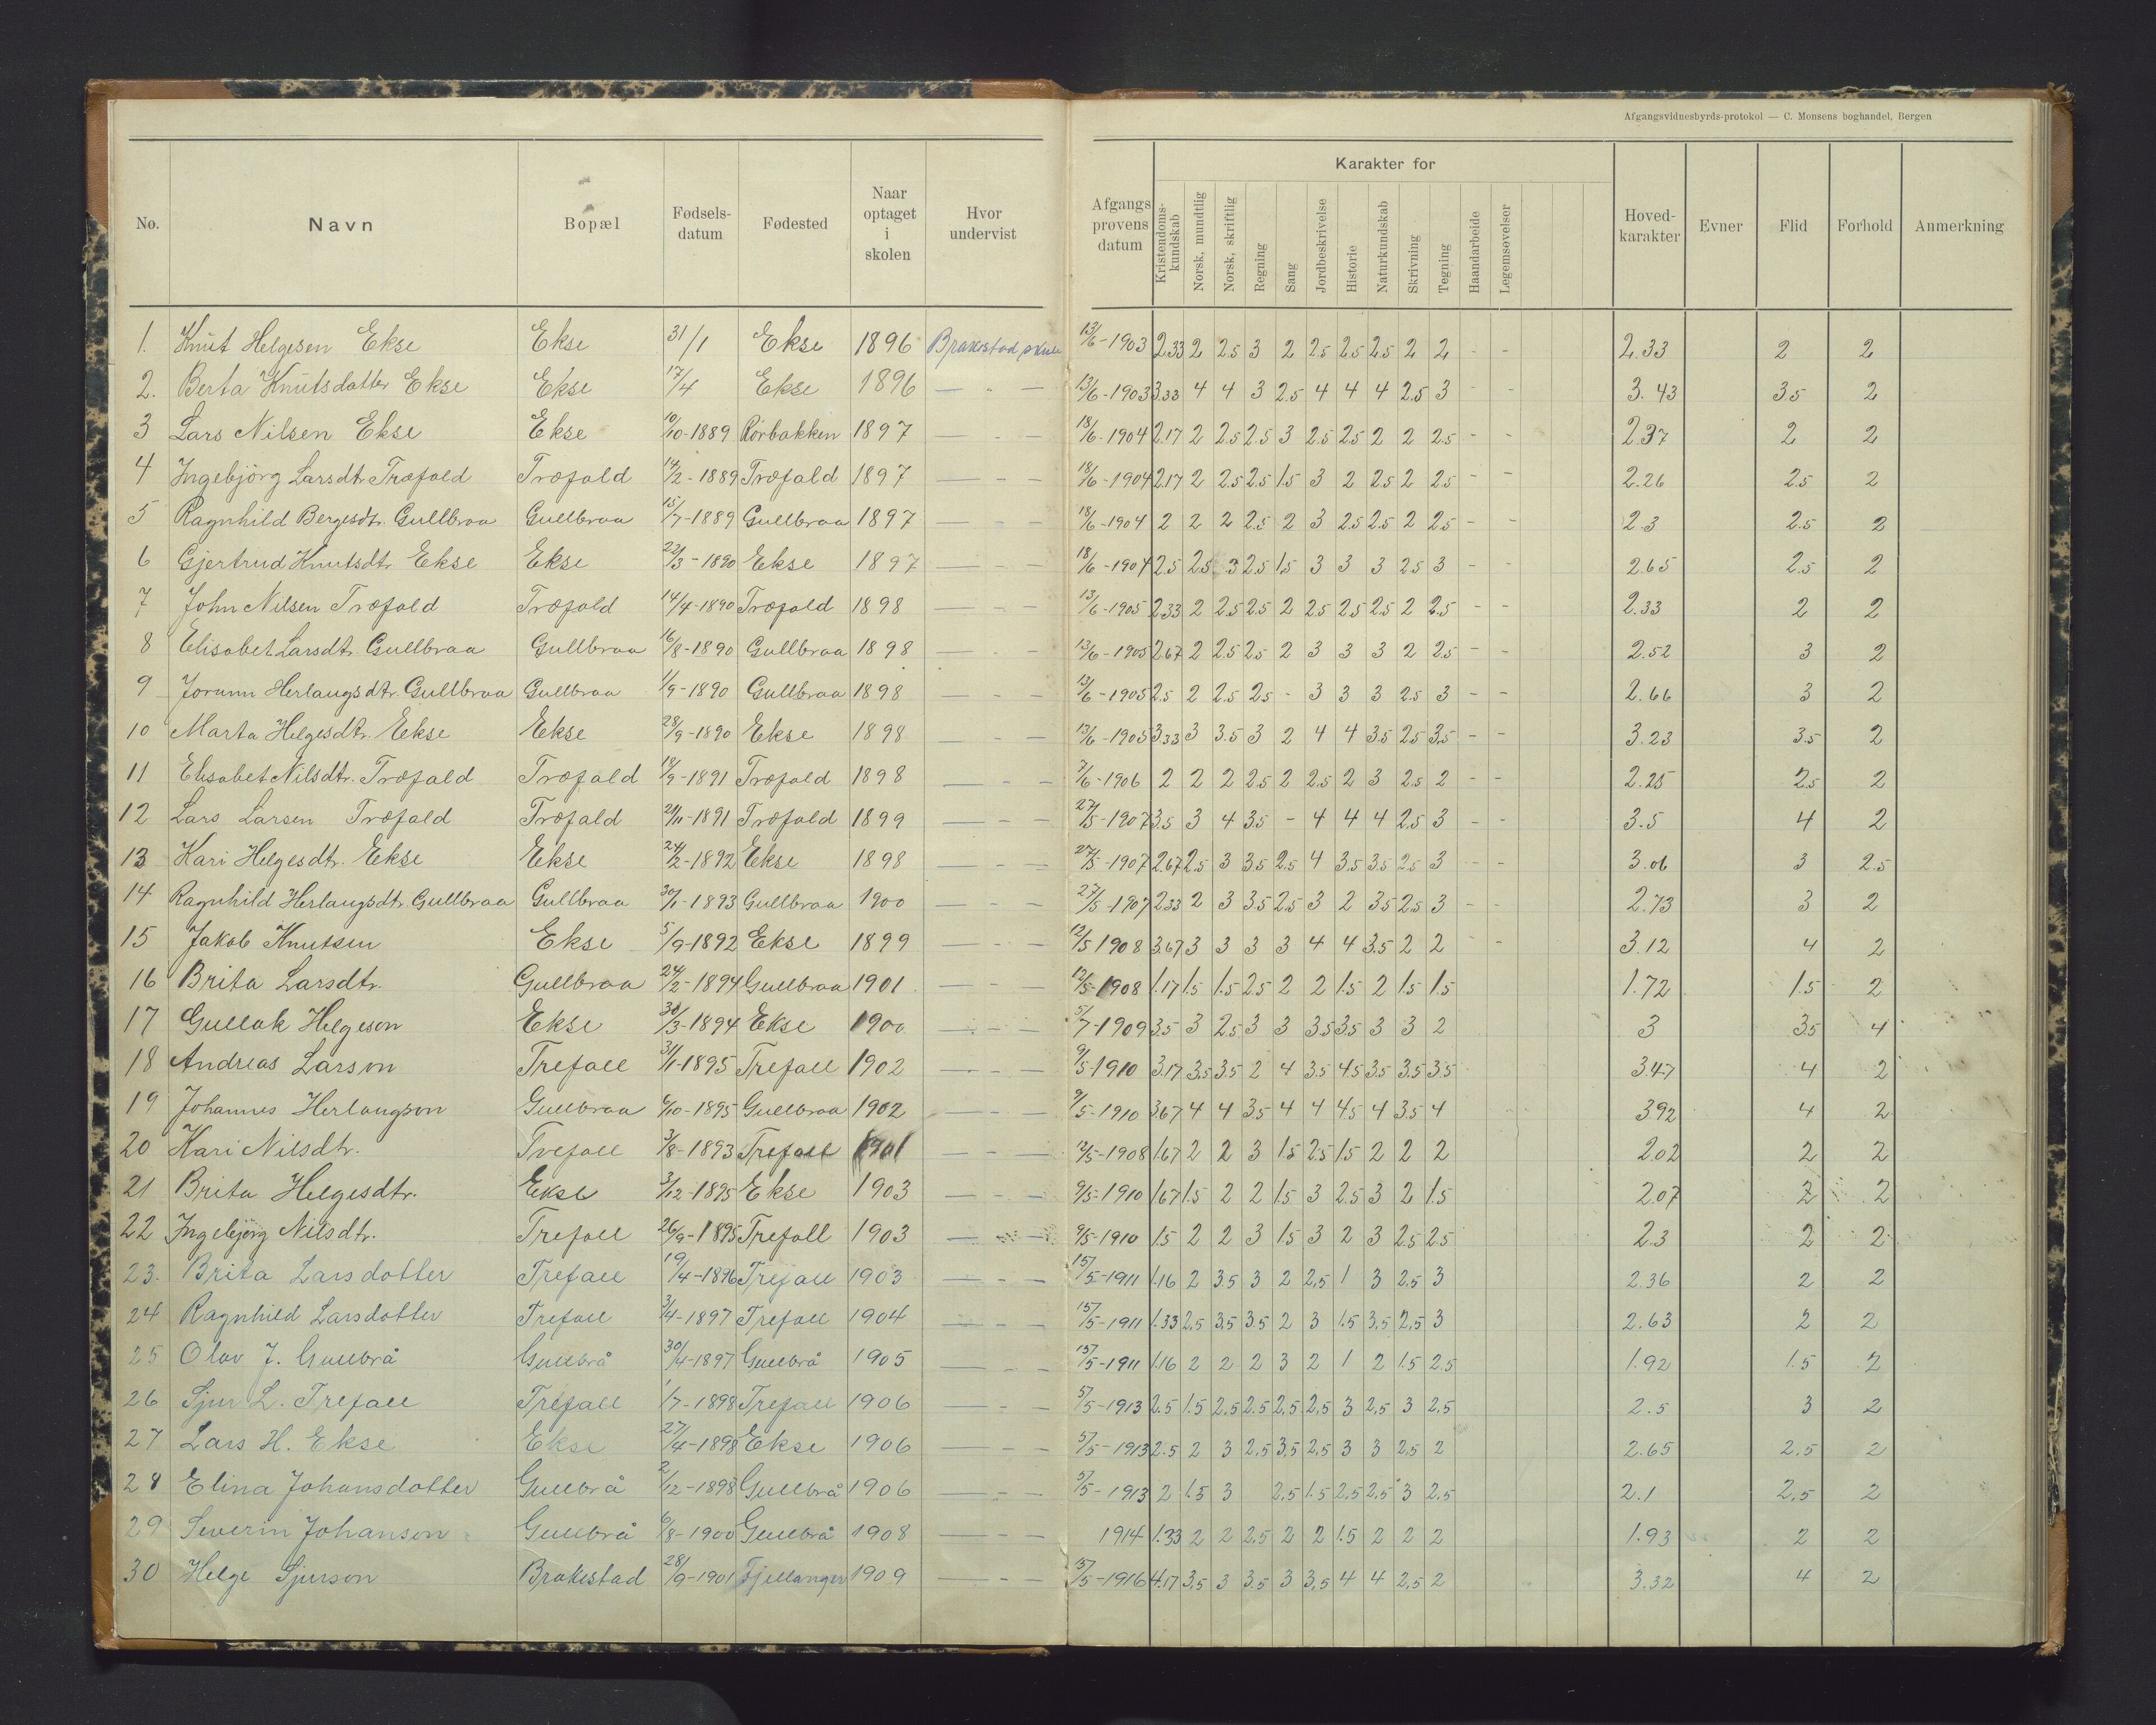 Afgangsvidnesbyrds-protokol — C. Monsens boghandel, Bergen
No. Navn Bopæl Fødsels-datum Fødested Naar optaget i skolen Hvor undervist Afgangsprøvens datum Karakter for Kristendoms-kundskab Norsk, mundtlig Norsk, skriftlig Regning Sang Jordbeskrivelse Historie Naturkundskab Skrivning Tegning Haandarbeide Legemsøvelser Hoved-karakter Evner Flid Forhold Anmerkning
1. Knut Helgesen Ekse Ekse 31/1 Ekse 1896 Brakestad skule 13/6-1903 2.33 2 2.5 3 2 2.5 2.5 2.5 2 2 - - 2.33 2 2
2. Berta Knutsdatter Ekse Ekse 17/4 Ekse 1896 — " — 13/6-1903 3.33 4 4 3 2.5 4 4 4 2.5 3 - - 3.43 3.5 2
3 Lars Nilsen Ekse Ekse 10/10-1889 Rörbakken 1897 — - — 18/6-1904 2.17 2 2.5 2.5 3 2.5 2.5 2 2 2.5 - - 2.37 2 2
4 Ingebjörg Larsdtr. Træfald Træfald 14/2-1889 Træfald 1897 — - — 18/6-1904 2.17 2 2.5 2.5 1.5 3 2 2.5 2 2.5 - - 2.26 2.5 2
5 Ragnhild Bergesdtr. Gullbraa Gullbraa 15/7-1889 Gullbraa 1897 — - — 18/6-1904 2 2 2 2.5 2 3 2.5 2.5 2 2.5 - - 2.3 2.5 2
6 Gjertrud Knutsdtr. Ekse Ekse 22/3-1890 Ekse 1897 — - — 18/6-1904 2.5 2.5 3 2.5 1.5 3 3 3 2.5 3 - - 2.65 2.5 2
7 John Nilsen Træfald Træfald 14/4-1890 Træfald 1898 — - — 13/6-1905 2.33 2 2.5 2.5 2 2.5 2.5 2.5 2 2.5 - - 2.33 2 2
8 Elisabet Larsdtr. Gullbraa Gullbraa 16/8-1890 Gullbraa 1898 — - — 13/6-1905 2.67 2 2.5 2.5 2 3 3 3 2 2.5 - - 2.52 3 2
9 Jorunn Herlaugsdtr. Gullbraa Gullbraa 1/9-1890 Gullbraa 1898 — - — 13/6-1905 2.5 2 2.5 2.5 - 3 3 3 2.5 3 - - 2.66 3 2
10 Marta Helgesdtr. Ekse Ekse 28/9-1890 Ekse 1898 — - — 13/6-1905 3.33 3 3.5 3 2 4 4 3.5 2.5 3.5 - - 3.23 3.5 2
11 Elisabet Nilsdtr. Træfald Træfald 18/9-1891 Træfald 1898 — - — 7/6-1906 2 2 2 2.5 2 2.5 2 3 2.5 2 - - 2.25 2.5 2
12 Lars Larsen Træfald Træfald 21/11-1891 Træfald 1899 — - — 27/5-1907 3.5 3 4 3.5 - 4 4 4 2.5 3 - - 3.5 4 2
13 Kari Helgesdtr. Ekse Ekse 24/2-1892 Ekse 1898 — - — 27/5-1907 2.67 2.5 3 3.5 2.5 4 3.5 3.5 2.5 3 - - 3.06 3 2.5
14 Ragnhild Herlaugsdtr. Gullbraa Gullbraa 30/1-1893 Gullbraa 1900 — - — 27/5-1907 2.33 2 3 3.5 2.5 3 2 3.5 2.5 3 - - 2.73 3 2
15 Jakob Knutsen Ekse 5/9-1892 Ekse 1899 — - — 12/5 1908 3.67 3 3 3 3 4 4 3.5 2 2 - 3.12 4 2
16 Brita Larsdtr. Gullbraa 24/2-1894 Gullbraa 1901 — - — 12/5-1908 1.17 1.5 1.5 2.5 2 2 1.5 2 1.5 1.5 1.72 1.5 2
17 Gullak Helgeson Ekse 30/3-1894 Ekse 1900 — - — 5/7-1909 3.5 3 2.5 3 3 3.5 3.5 3 3 2 3 3.5 4
18 Andreas Larson Trefall 31/1-1895 Trefall 1902 — - — 9/5-1910 3.17 3.5 3.5 2 4 3.5 4.5 3.5 3.5 3.5 3.47 4 2
19 Johannes Herlaugson Gullbraa 6/10-1895 Gullbraa 1902 — - — 9/5-1910 3.67 4 4 3.5 4 4 4.5 4 3.5 4 3.92 4 2
20 Kari Nilsdtr. Trefall 3/8-1893 Trefall 1901 — - — 12/5-1908 1.67 2 2 3 1.5 2.5 1.5 2 2 2 2.02 2 2
21 Brita Helgesdtr. Ekse 3/12-1895 Ekse 1903 — - — 9/5-1910 1.67 1.5 2 2 1.5 3 2.5 3 2 1.5 2.07 2 2
22 Ingebjörg Nilsdtr. Trefall 26/9-1895 Trefall 1903 — - — 9/5-1910 1.5 2 2 3 1.5 3 2 3 2.5 2.5 2.3 2 2
23. Brita Larsdotter Trefall 19/4-1896 Trefall 1903 — - — 15/5-1911 1.16 2 3.5 3 2 2.5 1 3 2.5 3 2.36 2 2
24 Ragnhild Larsdotter Trefall 3/4-1897 Trefall 1904 — - — 15/5-1911 1.33 2.5 3.5 3.5 2 3 1.5 3.5 2.5 3 2.63 2 2
25 Olav J. Gullbrå Gullbrå 30/4-1897 Gullbrå 1905 — - — 15/5-1911 1.16 2 2 2 3 2 1 2 1.5 2.5 1.92 1.5 2
26 Sjur L. Trefall Trefall 1/7-1898 Trefall 1906 — - — 5/5-1913 2.5 1.5 2.5 2.5 2.5 2.5 3 2.5 3 2.5 2.5 3 2
27 Lars H. Ekse Ekse 27/4-1898 Ekse 1906 — - — 5/5-1913 2.5 2 3 2.5 3.5 2.5 3 3 2.5 2 2.65 2.5 2
28 Elina Johansdotter Gullbrå 2/12-1898 Gullbrå 1906 — - — 5/5-1913 2 1.5 3 2.5 1.5 2.5 2.5 3 2.5 2.1 2.5 2
29 Severin Johanson Gullbrå 6/8-1900 Gullbrå 1908 — - — 1914 1.33 2 2 2.5 2 2 1.5 2 2 2 1.93 2 2
30 Helge Sjurson Brakestad 28/9-1901 Fjellanger 1909 — - — 15/5-1916 4.17 3.5 3 3.5 3 3.5 4 4 2.5 2 3.32 4 2